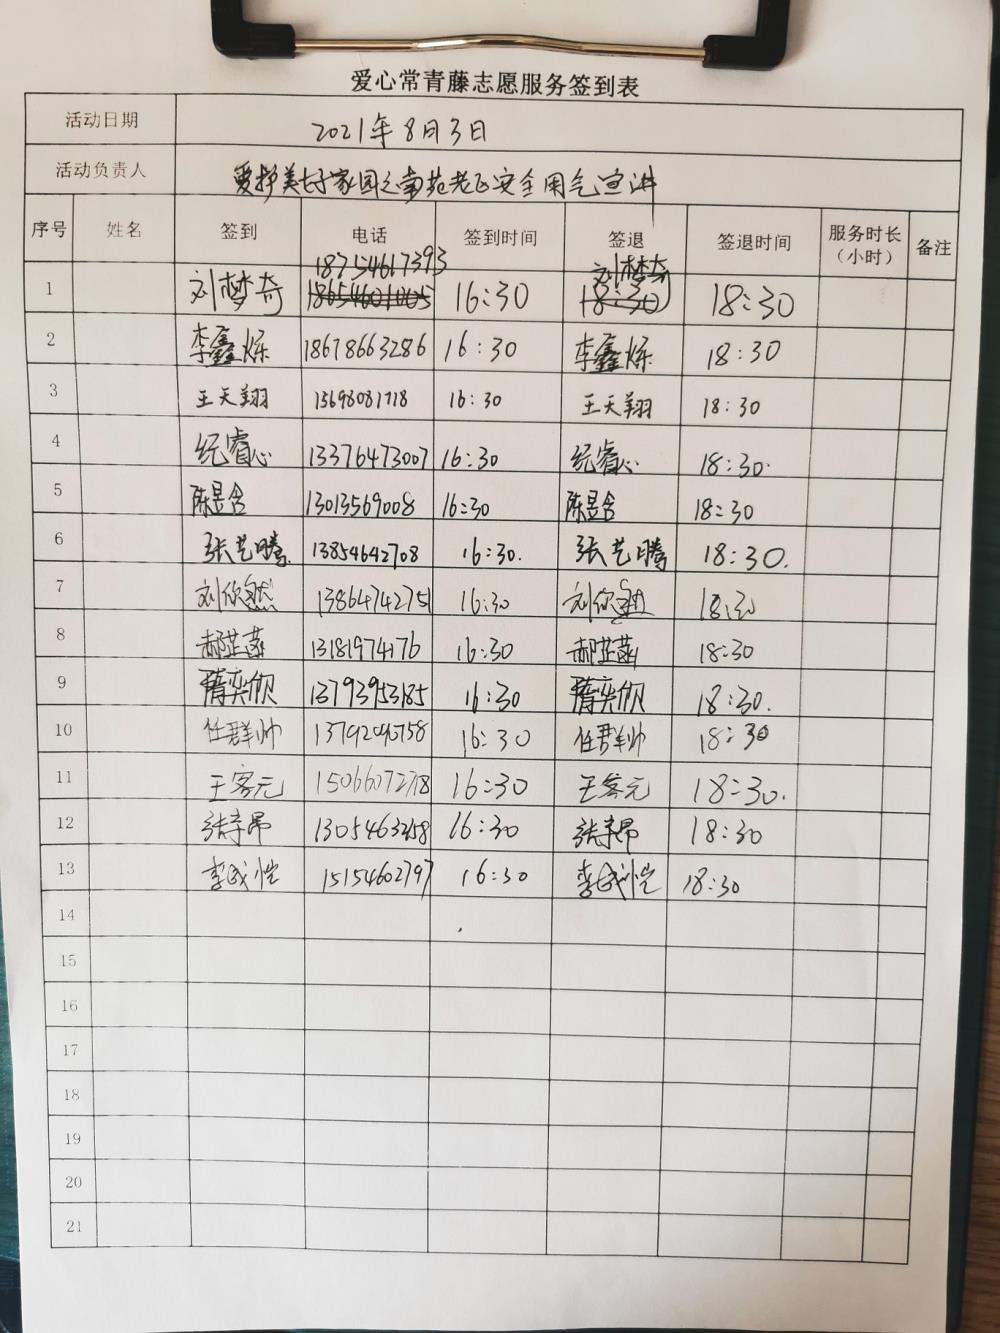 爱心常青藤志愿服务签到表
活动日期 2021年8月3日
活动负责人 爱护美好家园之南苑老区安全用气宣讲
序号 姓名 签到 电话 签到时间 签退 签退时间 服务时长（小时） 备注
1 刘梦奇 18754617393 16:30 刘梦奇 18:30
2 李鑫烁 18678663286 16:30 李鑫烁 18:30
3 王天翔 13698081718 16:30 王天翔 18:30
4 纪睿心 13376473007 16:30 纪睿心 18:30.
5 陈昱含 13013569008 16:30 陈昱含 18:30
6 张艺腾. 13854642708 16:30. 张艺腾 18:30.
7 刘欣然 13864742751 16:30 刘欣然 18:30
8 郝芷菡 13181974176 16:30 郝芷菡 18:30
9 隋奕欣 13793953185 16:30 隋奕欣 18:30.
10 任群帅 16:30 任群帅 18:30
11 王客元 16:30 王客元 18:30.
12 16:30 18:30
13 李成恺 15154602797 16:30 李成恺 18:30
14
15
16
17
18
19
20
21